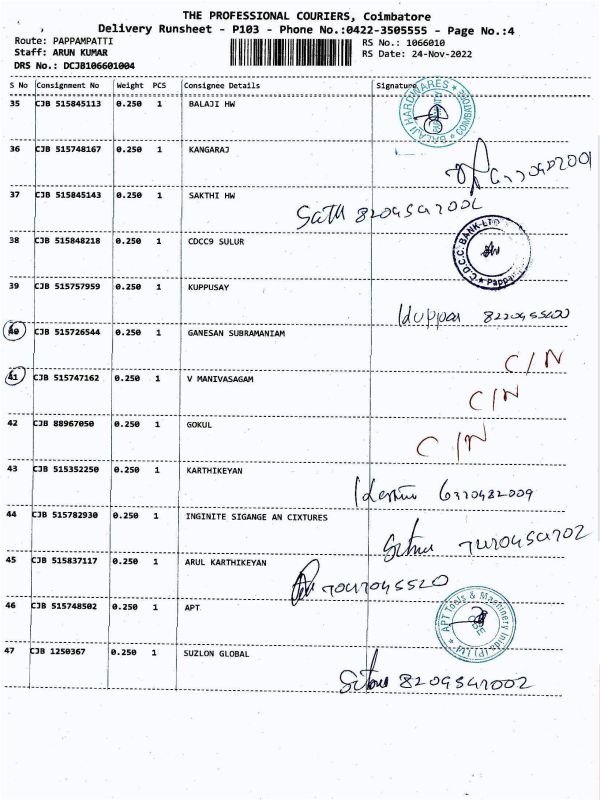 THE PROFESSIONAL COURIERS, Coimbatore
Delivery Runsheet - P103 - Phone No.:0422-3505555 - Page No.:4
Route: PAPPAMPATTI RS No.: 1066010
Staff: ARUN KUMAR RS Date: 24-Nov-2022
DRS No.: DCJB106601004
S No Consignment No Weight PCS Consignee Details Signature
35 CJB 515845113 0.250 1 BALAJI HW
BALAJI HARDWARES COIMBATORE
36 CJB 515748167 0.250 1 KANGARAJ
37 CJB 515845143 0.250 1 SAKTHI HW
38 CJB 515848218 0.250 1 CDCC9 SULUR
C.D.C.C. BANK-LTD
39 CJB 515757959 0.250 1 KUPPUSAY
40 CJB 515726544 0.250 1 GANESAN SUBRAMANIAM
C/N
41 CJB 515747162 0.250 1 V MANIVASAGAM
C/N
42 CJB 88967050 0.250 1 GOKUL
C/N
43 CJB 515352250 0.250 1 KARTHIKEYAN
44 CJB 515782930 0.250 1 INGINITE SIGANGE AN CIXTURES
45 CJB 515837117 0.250 1 ARUL KARTHIKEYAN
46 CJB 515748502 0.250 1 APT
APT Tools & Machinery India (P) Ltd
47 CJB 1250367 0.250 1 SUZLON GLOBAL